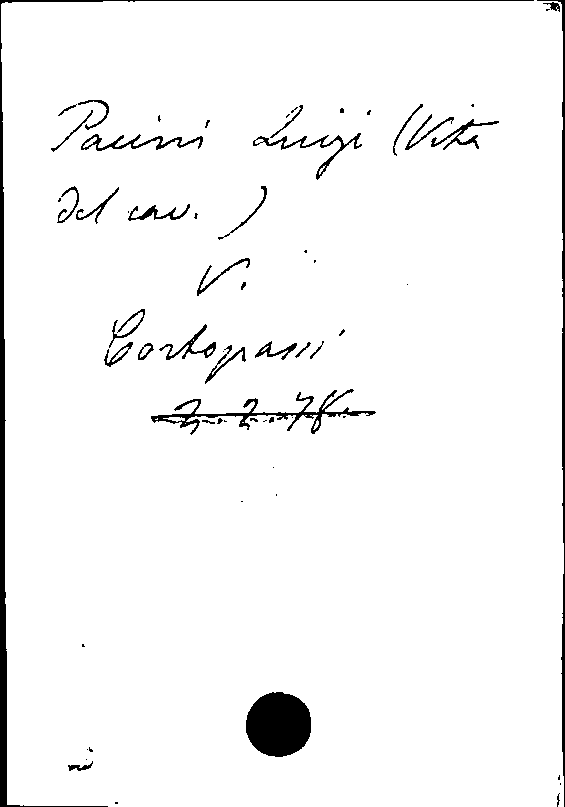 Pacini Luigi (Vita
del cav. )
V.
Cortopassi
2.2.78.